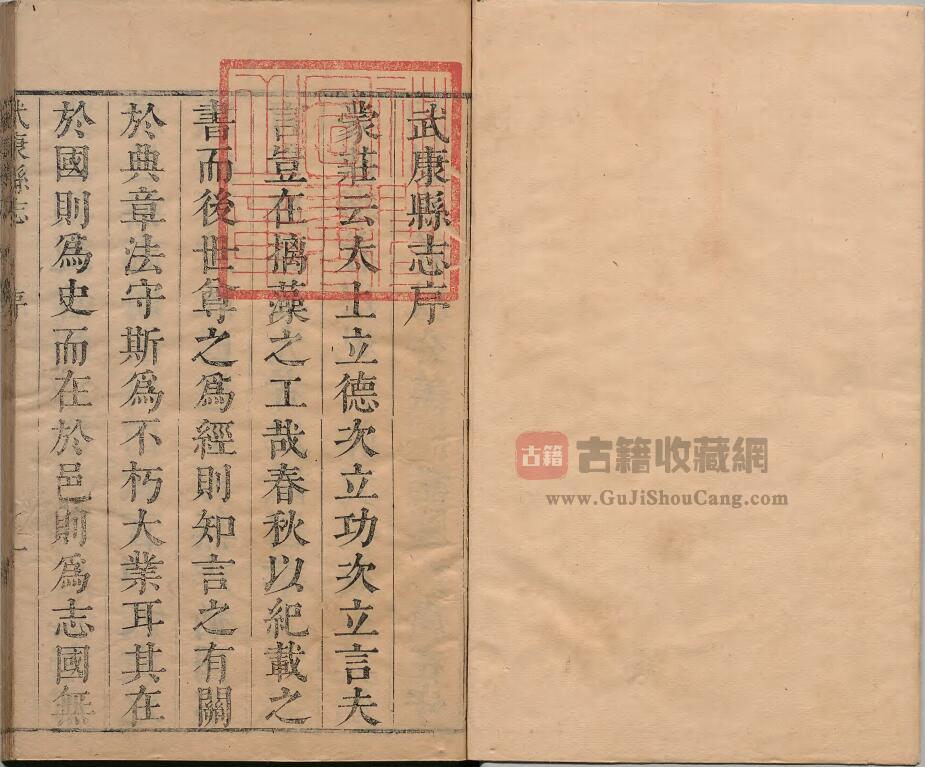 武康縣志序
蒙莊云太上立德次立功次立言夫
言豈在摛藻之工哉春秋以紀載之
書而後世尊之爲經則知言之有關
於典章法守斯爲不朽大業耳其在
於國則爲史而在於邑則爲志國無
武康縣志 序 一
古籍 古籍收藏網
www.GuJiShouCang.com